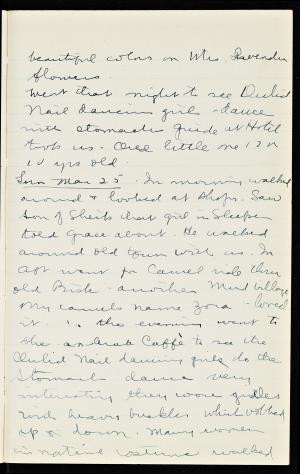 beautiful colors on Mts, Lavender
flowers.
Went that night to see Oulid
Nail dancing girls - dance
with stomachs guide at Hotel
took us - One little one 12 or
10 yrs old.
Sun Mar 25. In morning walked
around & looked at shops. Saw
Son of Sheik that girl in Sleeper
told Grace about. He walked
around old town with us. In
aft went for Camel ride thru
old Bisk - another Mud Village
My camels name Zora - loved
it. In the evening went to
the Caffè to see the
Oulid Nail dancing girls do the
Stomach dance very
interesting they wore girdles
with heavy buckles which bobbed
up or down. Many women
in native costume walked